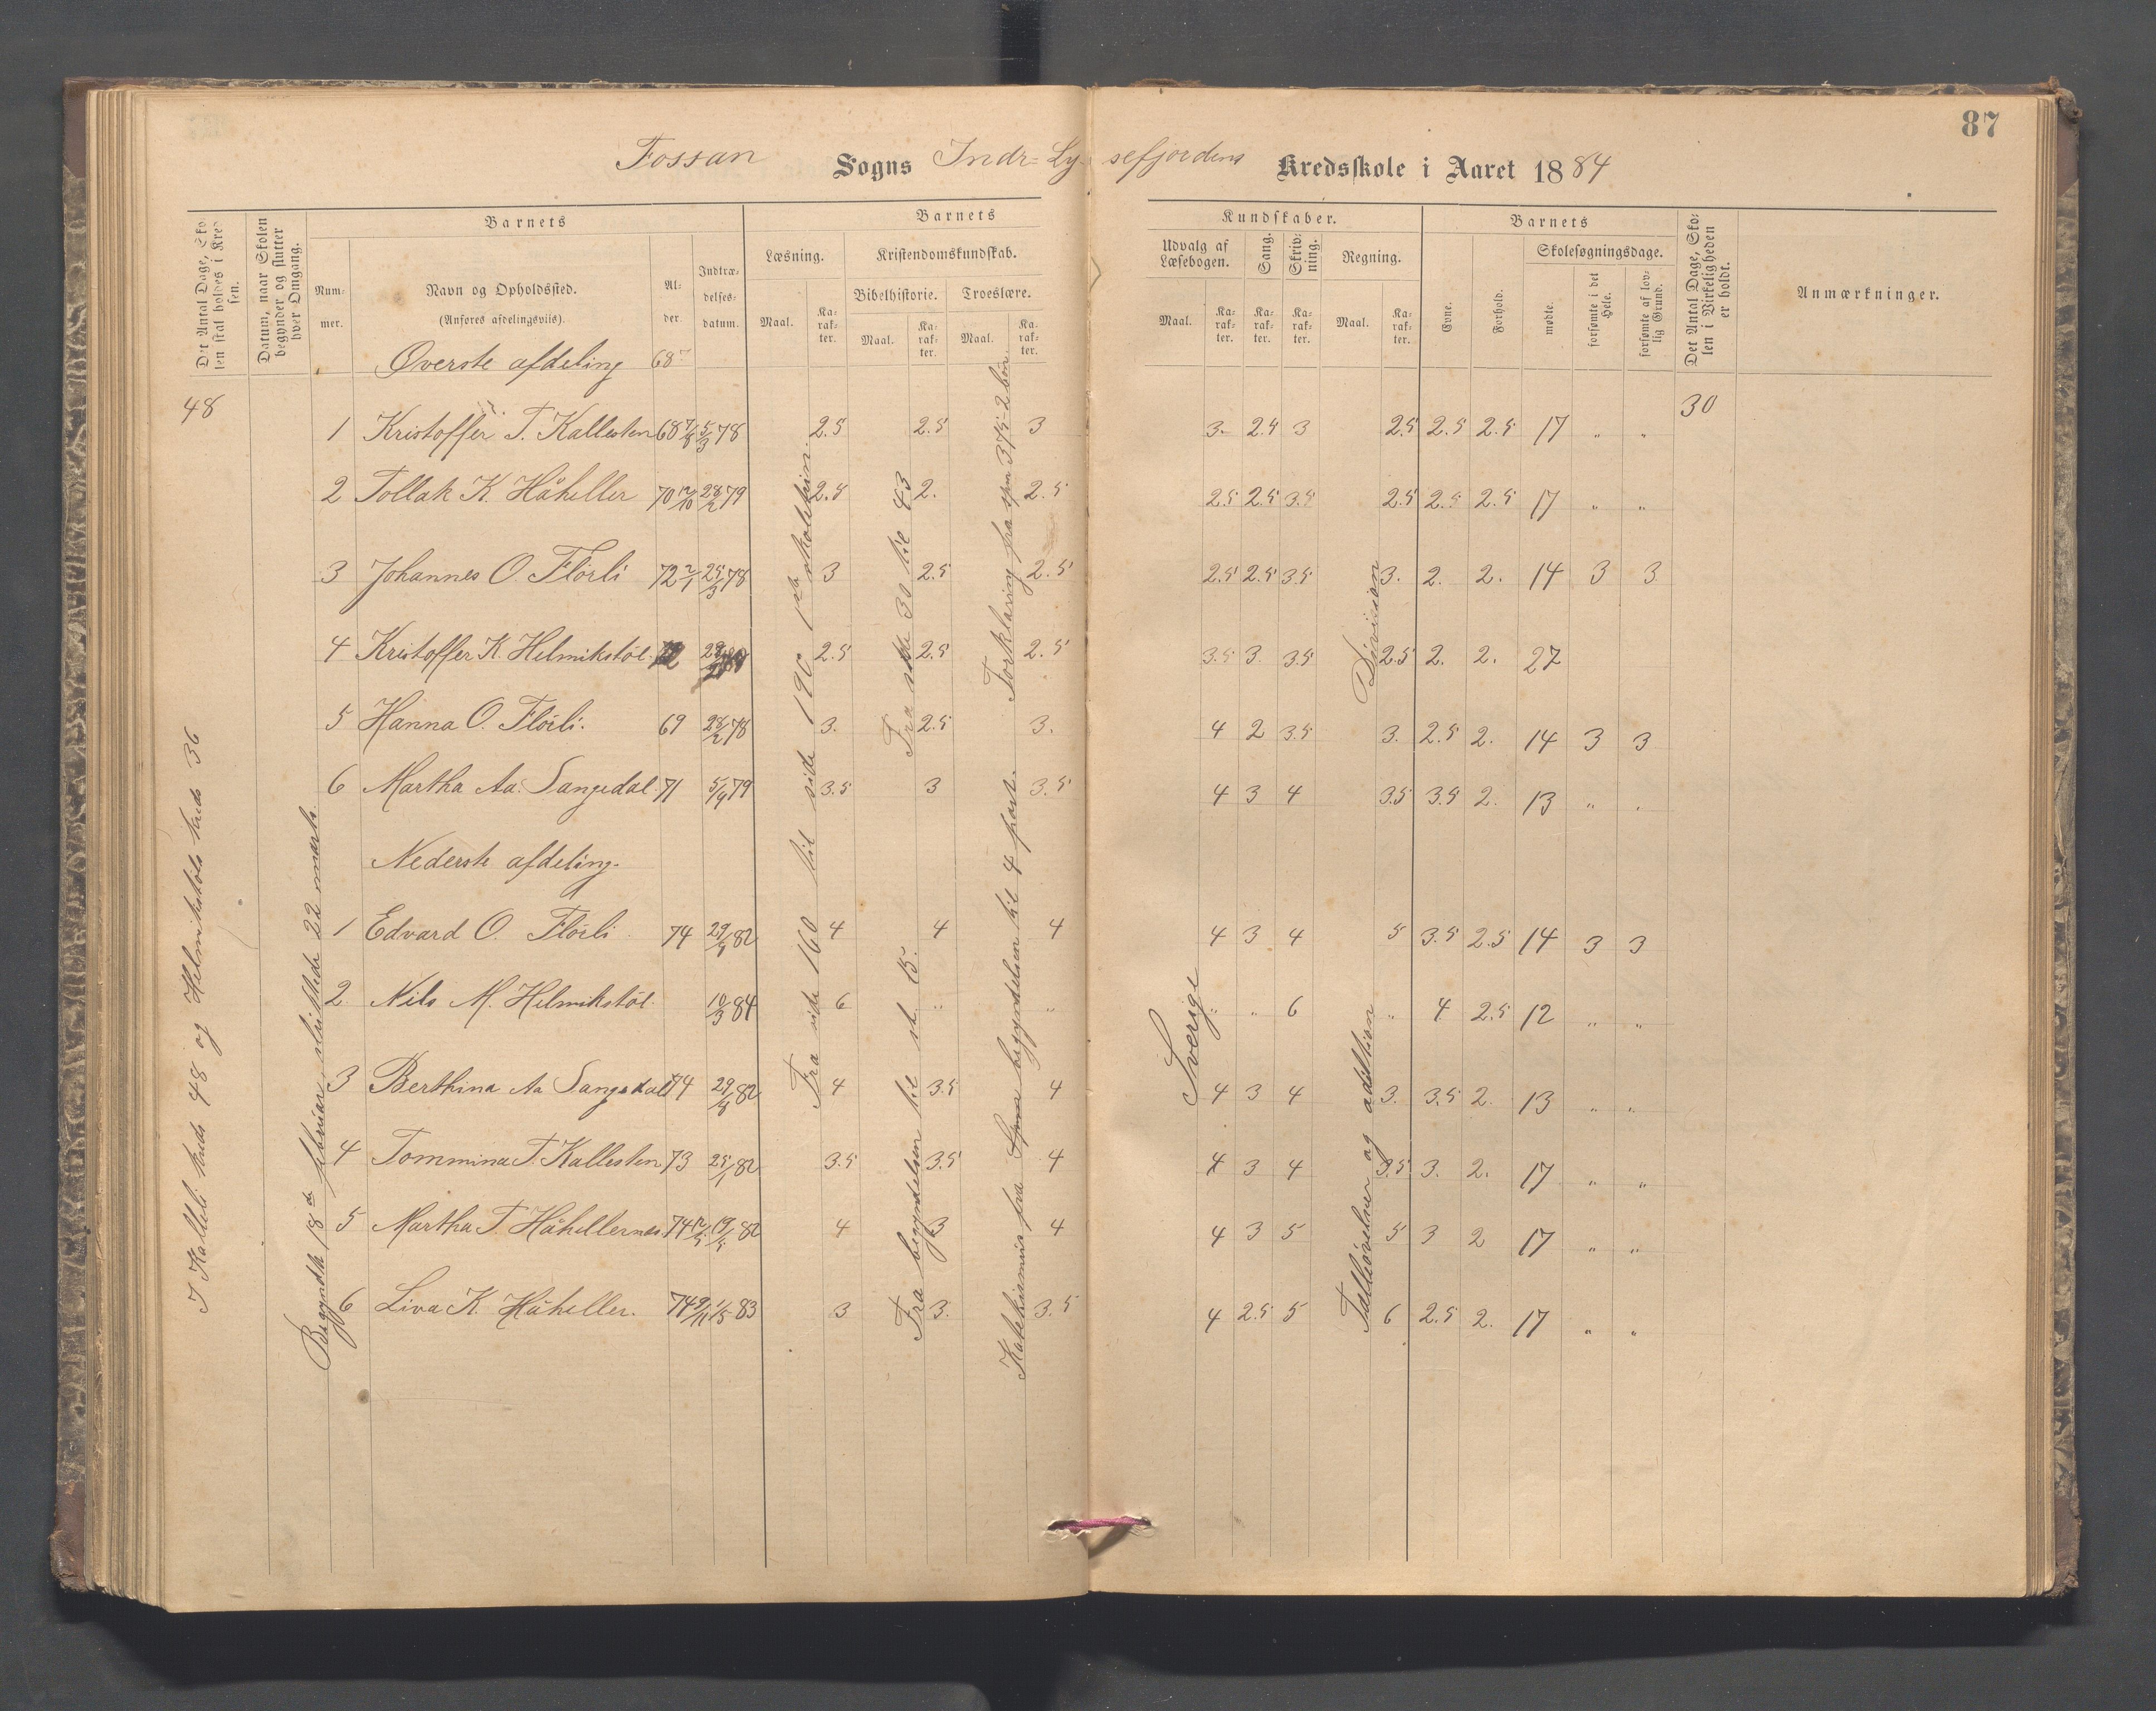 87
Fossan Sogns Indr= Ly= sefjordens Kredsskole i Aaret 1884
Det Antal Dage, Sko-
len skal holdes i Kred-
sen.
Datum, naar Skolen
begynder og slutter
hver Omgang.
Barnets
Num-
mer.
Navn og Opholdssted.
(Anføres afdelingsviis).
Al-
der.
Indtræ-
delses-
datum.
Barnets
Læsning.
Maal.
Ka-
rak-
ter.
Kristendomskundskab.
Bibelhistorie.
Maal.
Ka-
rak-
ter.
Troeslære.
Maal.
Ka-
rak-
ter.
Kundskaber.
Udvalg af
Læsebogen.
Maal.
Ka-
rak-
ter.
Sang.
Ka-
rak-
ter.
Skriv-
ning.
Ka-
rak-
ter.
Regning.
Maal.
Ka-
rak-
ter.
Barnets
Evne.
Forhold.
Skolesøgningsdage.
mødte.
forsømte i det
Hele.
forsømte af lov-
lig Grund.
Det Antal Dage, Sko-
len i Virkeligheden
er holdt.
Anmærkninger.
Øverste afdeling 68
48
30
1 Kristoffer T. Kallesten 68 7/8 5/3 78 2.5 2.5 3 3. 2.5 3 2.5 2.5 2.5 17 " "
2 Tollak K. Håheller 70 12/10 28/2 79 2.5 2. 2.5 2.5 2.5 3.5 2.5 2.5 2.5 17 " "
3 Johannes O. Flörli 72 2/1 25/3 78 3 2.5 2.5 2.5 2.5 3.5 3. 2. 2. 14 3 3
4 Kristoffer K. Helmikstöl 2.5 2.5 2.5 3.5 3. 3.5 2.5 2. 2. 27
5 Hanna O. Flörli. 69 28/2 78 3. 2.5 3. 4 2 3.5 3. 2.5 2. 14 3 3
6 Martha Aa. Sangedal. 71 5/9 79 3.5 3 3.5 4 3 4 3.5 3.5 2. 13 " "
Nederste afdeling.
1 Edvard O. Flörli 74 29/9 82 4 4 4 4 3 4 5 3.5 2.5 14 3 3
2. Nils M. Helmikstöl. 10/3 84 6 " " " " 6 " 4 2.5 12 " "
3 Berthina Aa Sangedal 74 29/8 82 4 3.5 4 4 3 4 3. 3.5 2. 13 " "
4 Tommina T. Kallesten 73 25/1 82 3.5 3.5 4 4 3 4 3.5 3. 2. 17 " "
5 Martha T. Håhellernes 74 12/5 19/5 82 4 3 4 4 3 5 5 3 2 17 " "
6 Liva K. Håheller. 74 9/11 1/5 83 3 3. 3.5 4 2.5 5 6 2.5 2. 17 " "
I Kalleli kreds 48 og Helmikstöls kreds 36
Begyndte 18de februar sluttede 22 marts.
Fra side 160 til side 190 1ste skoletrin.
Fra stk 30 til 43
Fra begyndelsen til st. 15.
Forklaring fra spm 375 - 2 bön
Katekismus fra Spm begyndelsen til 4 part.
Sverige
Division
Tælleövelser og addition